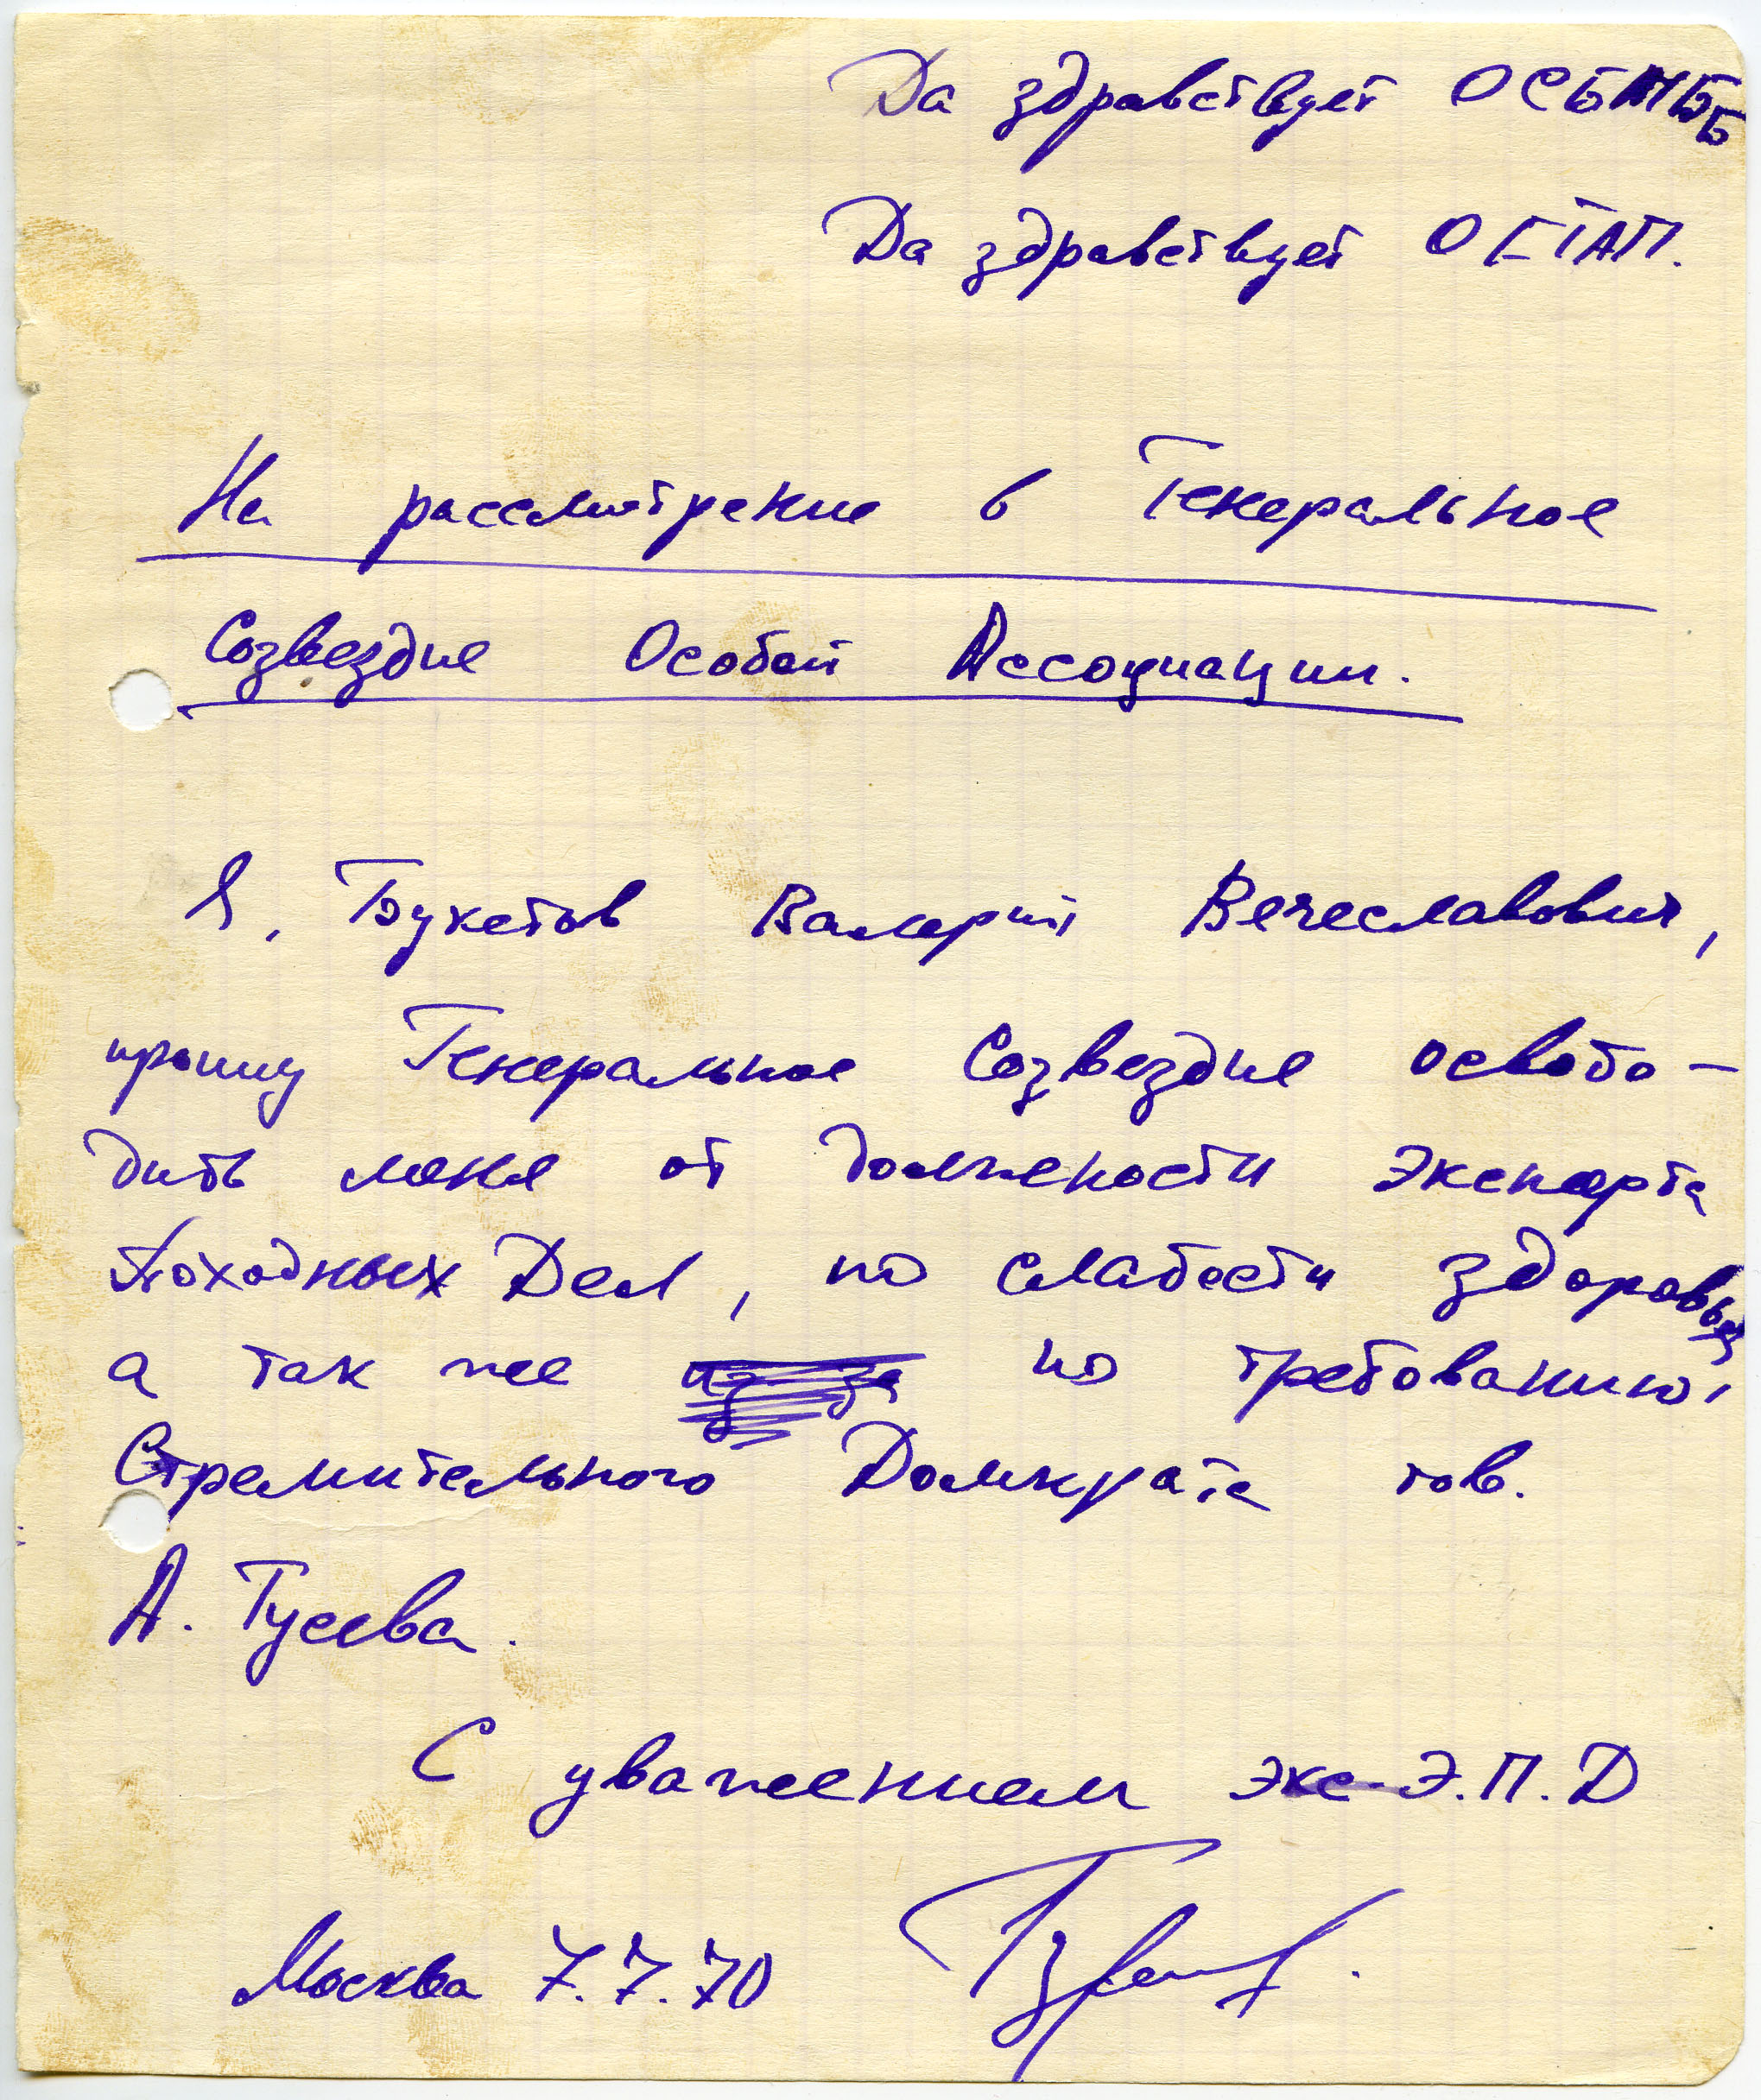 Да здравствует
Да здравствует ОКТАП.
На рассмотрение в Генеральное
Созвездие Особой Ассоциации.
Я, Букетов Валерий Вечеславович,
прошу Генеральное Созвездие освобо-
дить меня от должности Эксперта
Походных Дел, по слабости здоровья,
а так же по требованию
Стремительного Домкрата тов.
А. Гусева.
С уважением экс-Э.П.Д
Москва 7.7.70